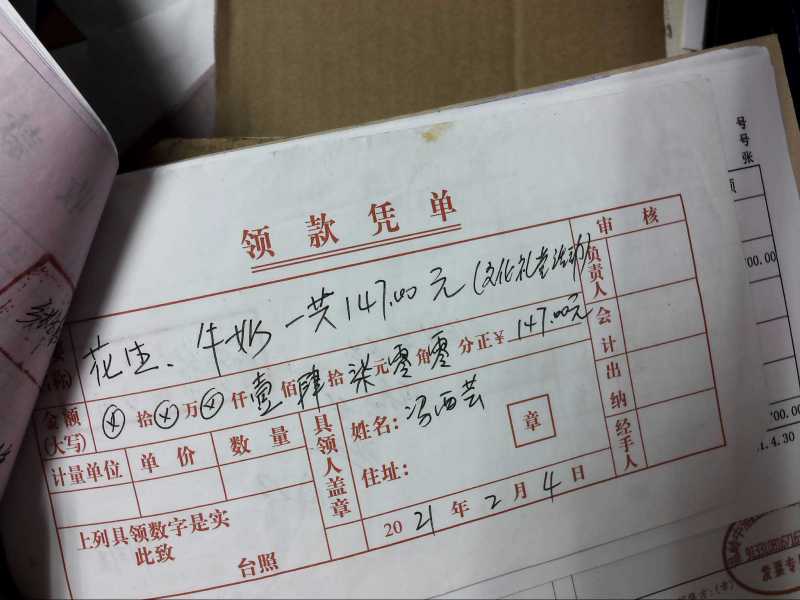 领款凭单
审核
花生、牛奶 一共147.00元(文化礼堂活动)
负责人
金额
(大写)
ⓧ拾ⓧ万ⓧ仟壹佰肆拾柒元零角零分正¥147.00元
会计
计量单位 单价 数量
具领人盖章
姓名:冯西芸
章
出纳
住址:
经手人
上列具领数字是实
此致
台照
2021年2月4日
号
号
张
00.00
700.00
1.4.30
发票专